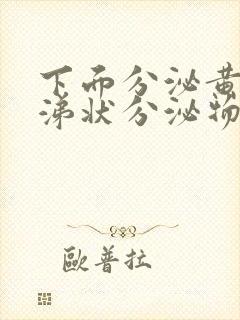 下而分泌黄
涕状分泌物
歐普拉